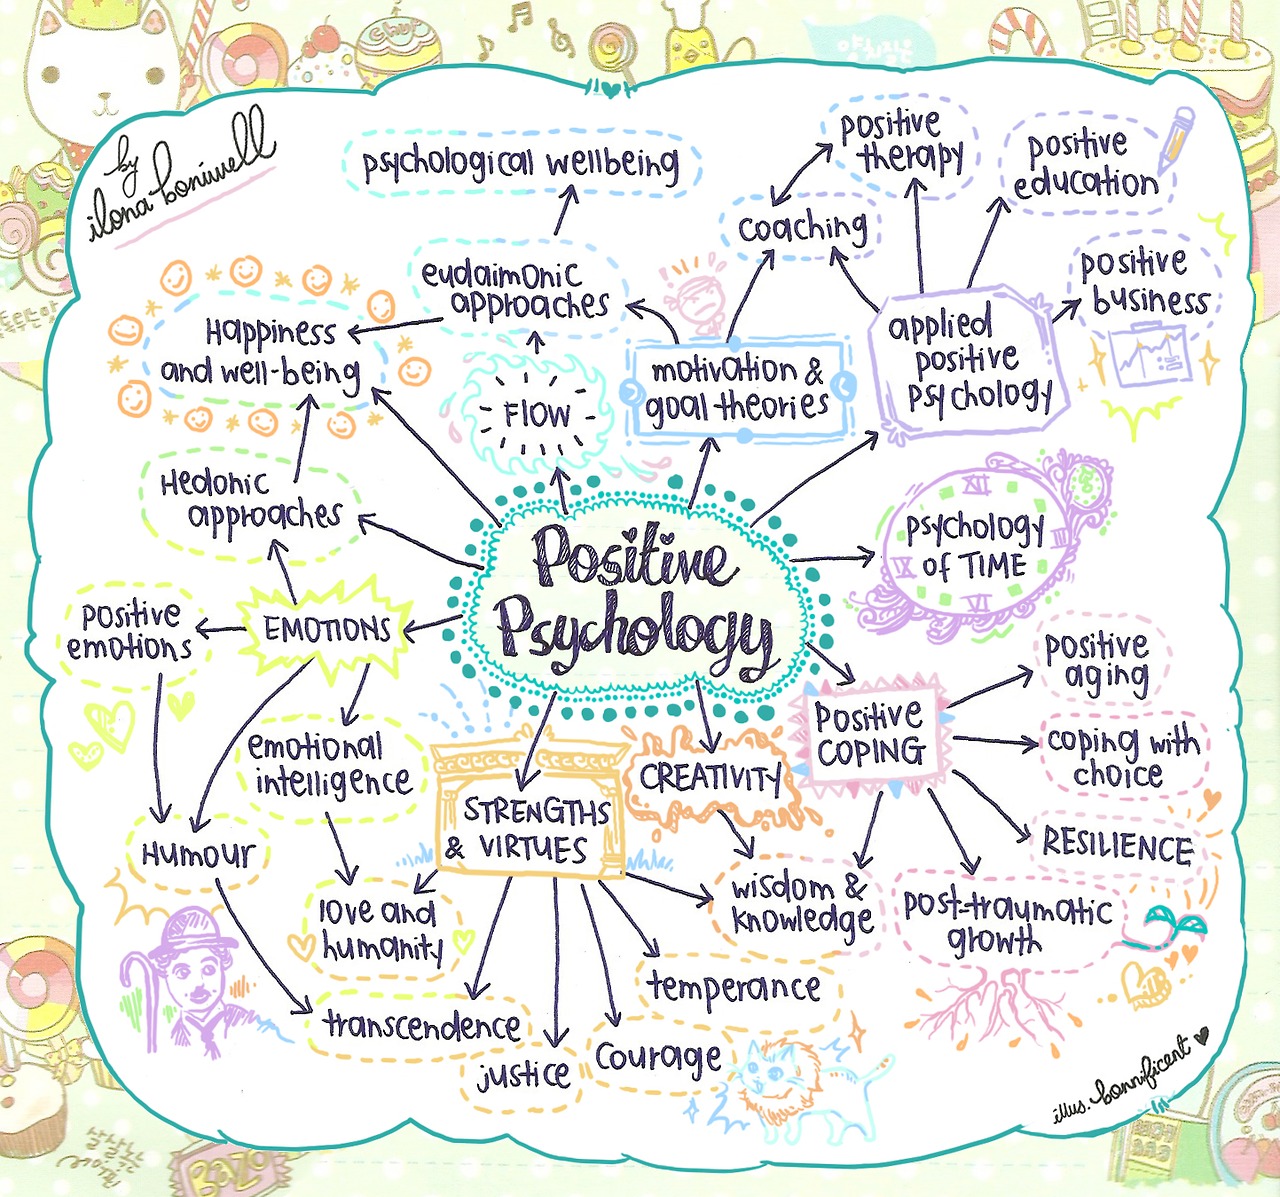 by
ilona boniwell
psychological wellbeing
positive
therapy
positive
education
coaching
eudaimonic
approaches
positive
business
Happiness
and well-being
applied
positive
psychology
motivation &
goal theories
FLOW
Hedonic
approaches
psychology
of TIME
XII
III
VI
IX
Positive
Psychology
EMOTIONS
positive
emotions
positive
aging
Positive
COPING
coping with
choice
emotional
intelligence
CREATIVITY
STRENGTHS
& VIRTUES
RESILIENCE
Humour
wisdom &
knowledge
post-traumatic
growth
love and
humanity
temperance
transcendence
Courage
justice
illus. bonnificent